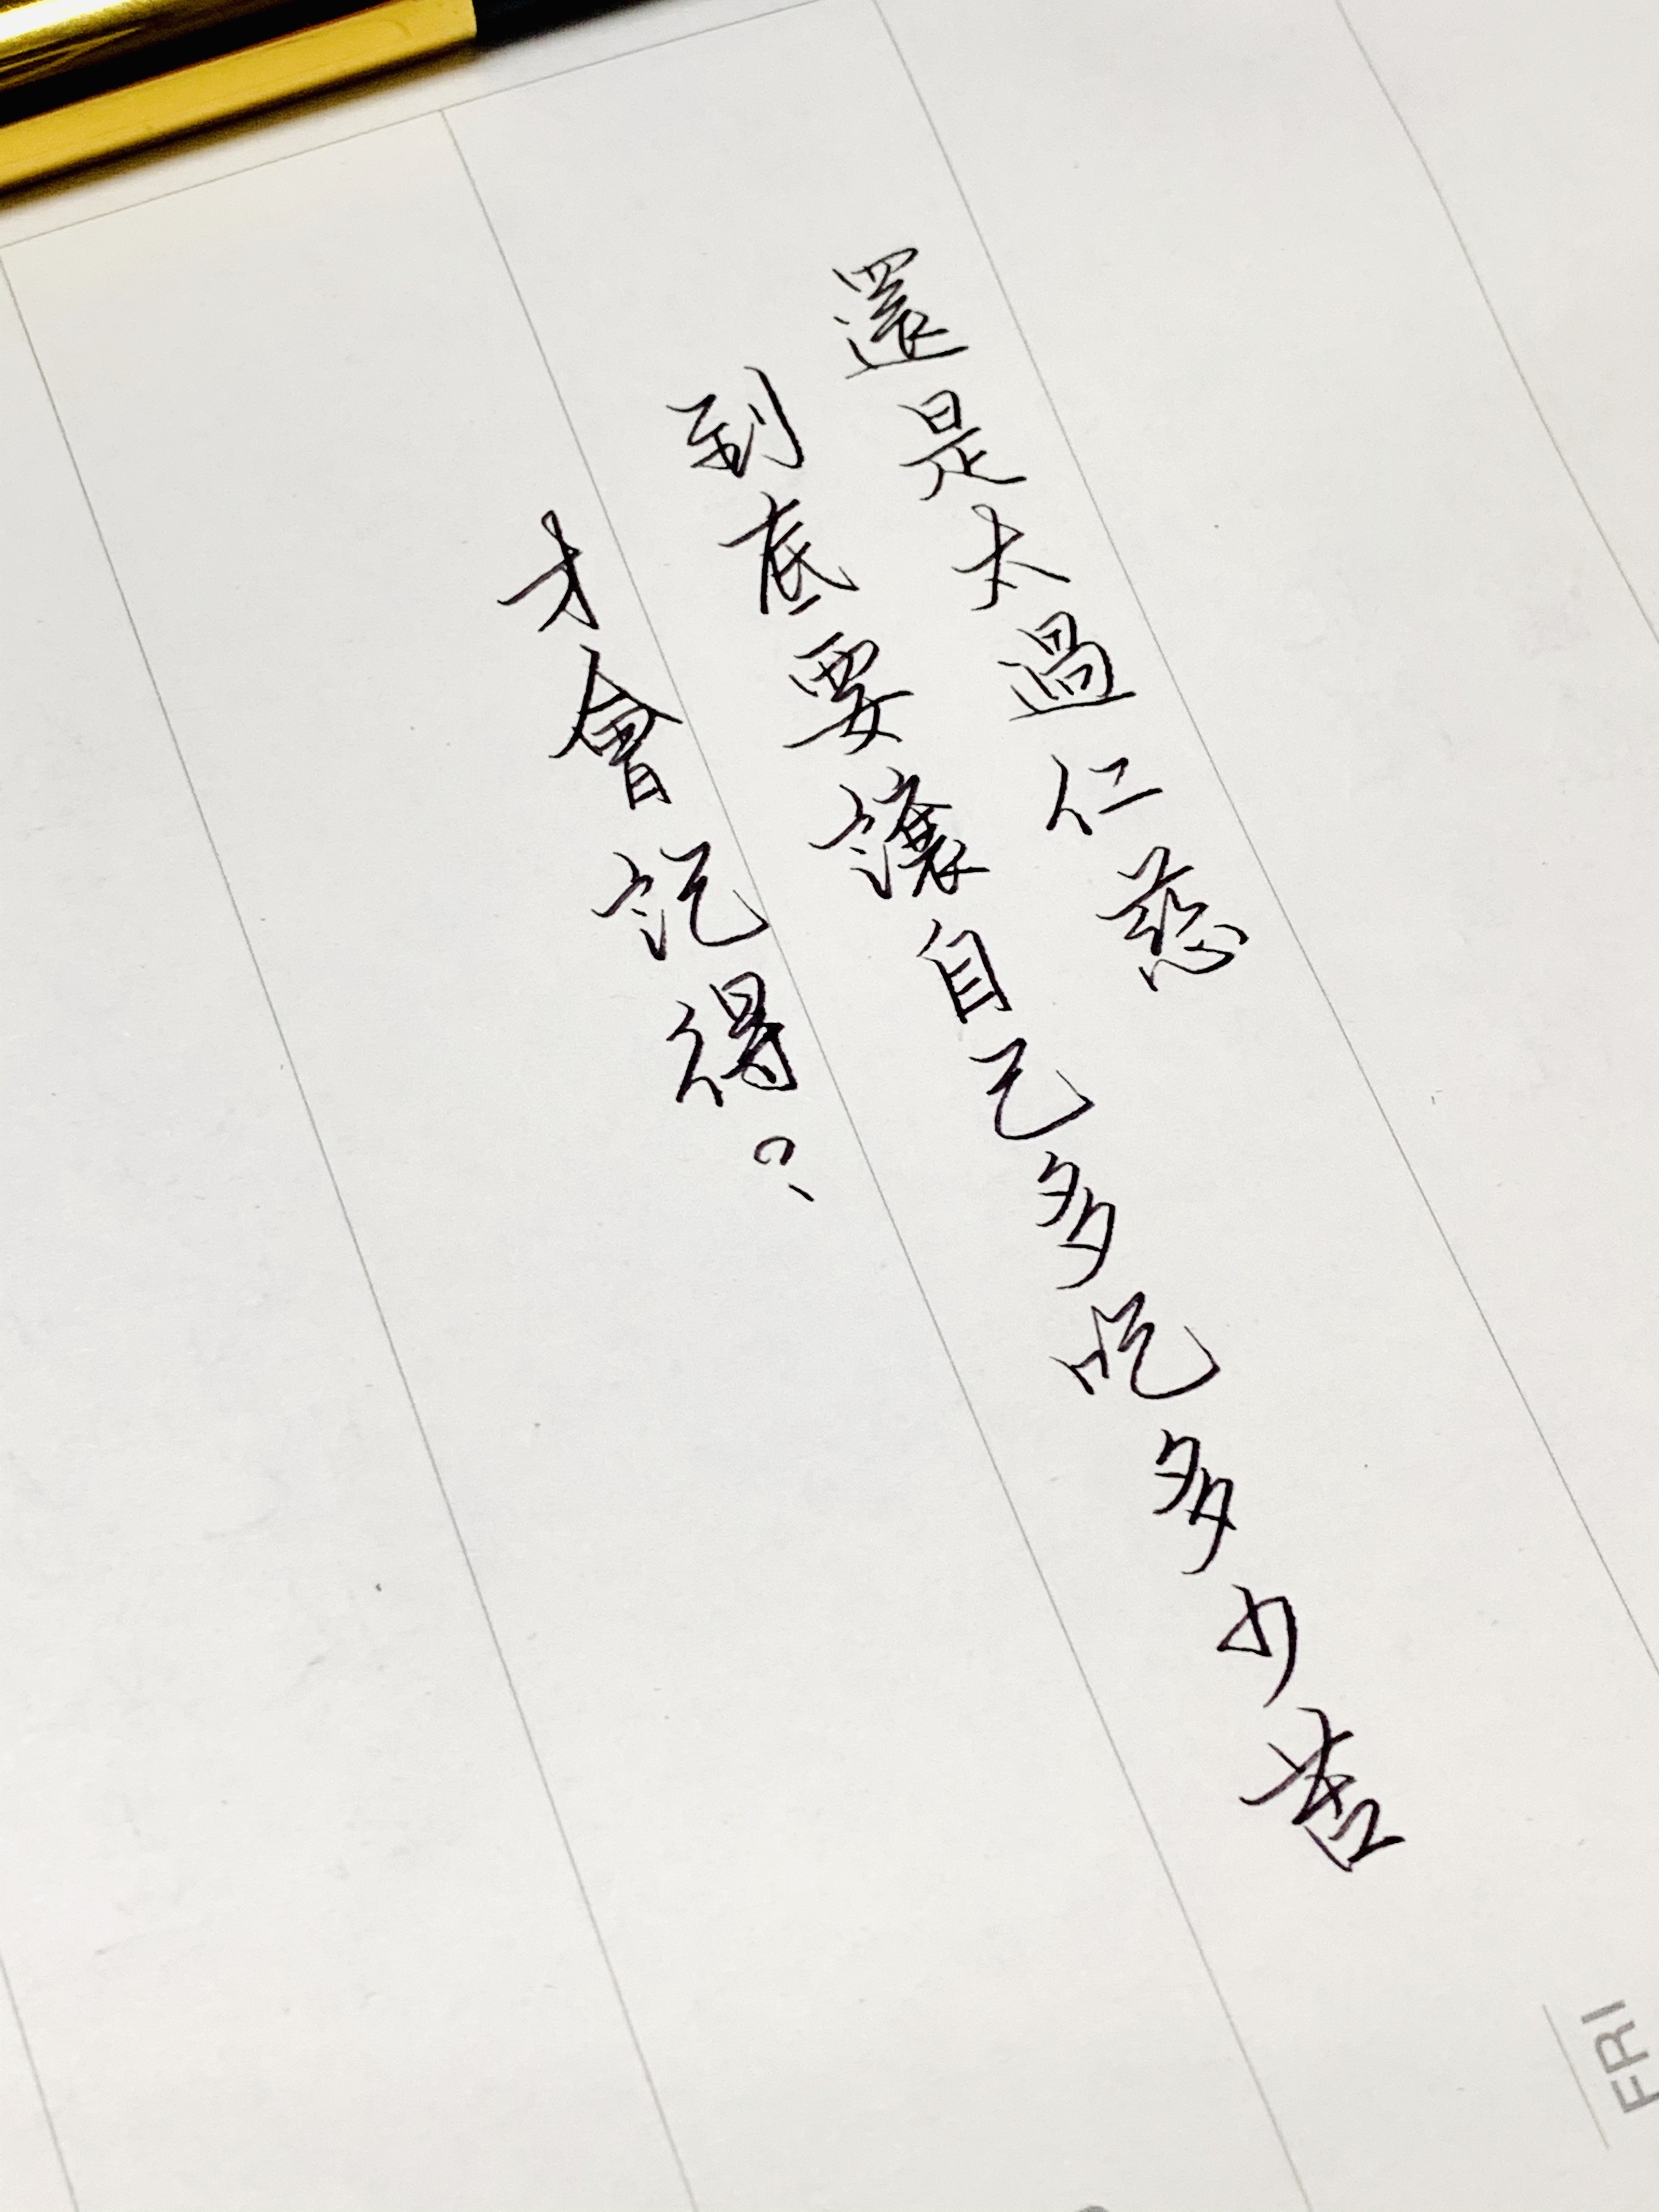 還是太過仁慈
到底要讓自己多吃多少苦
才會記得？
FRI